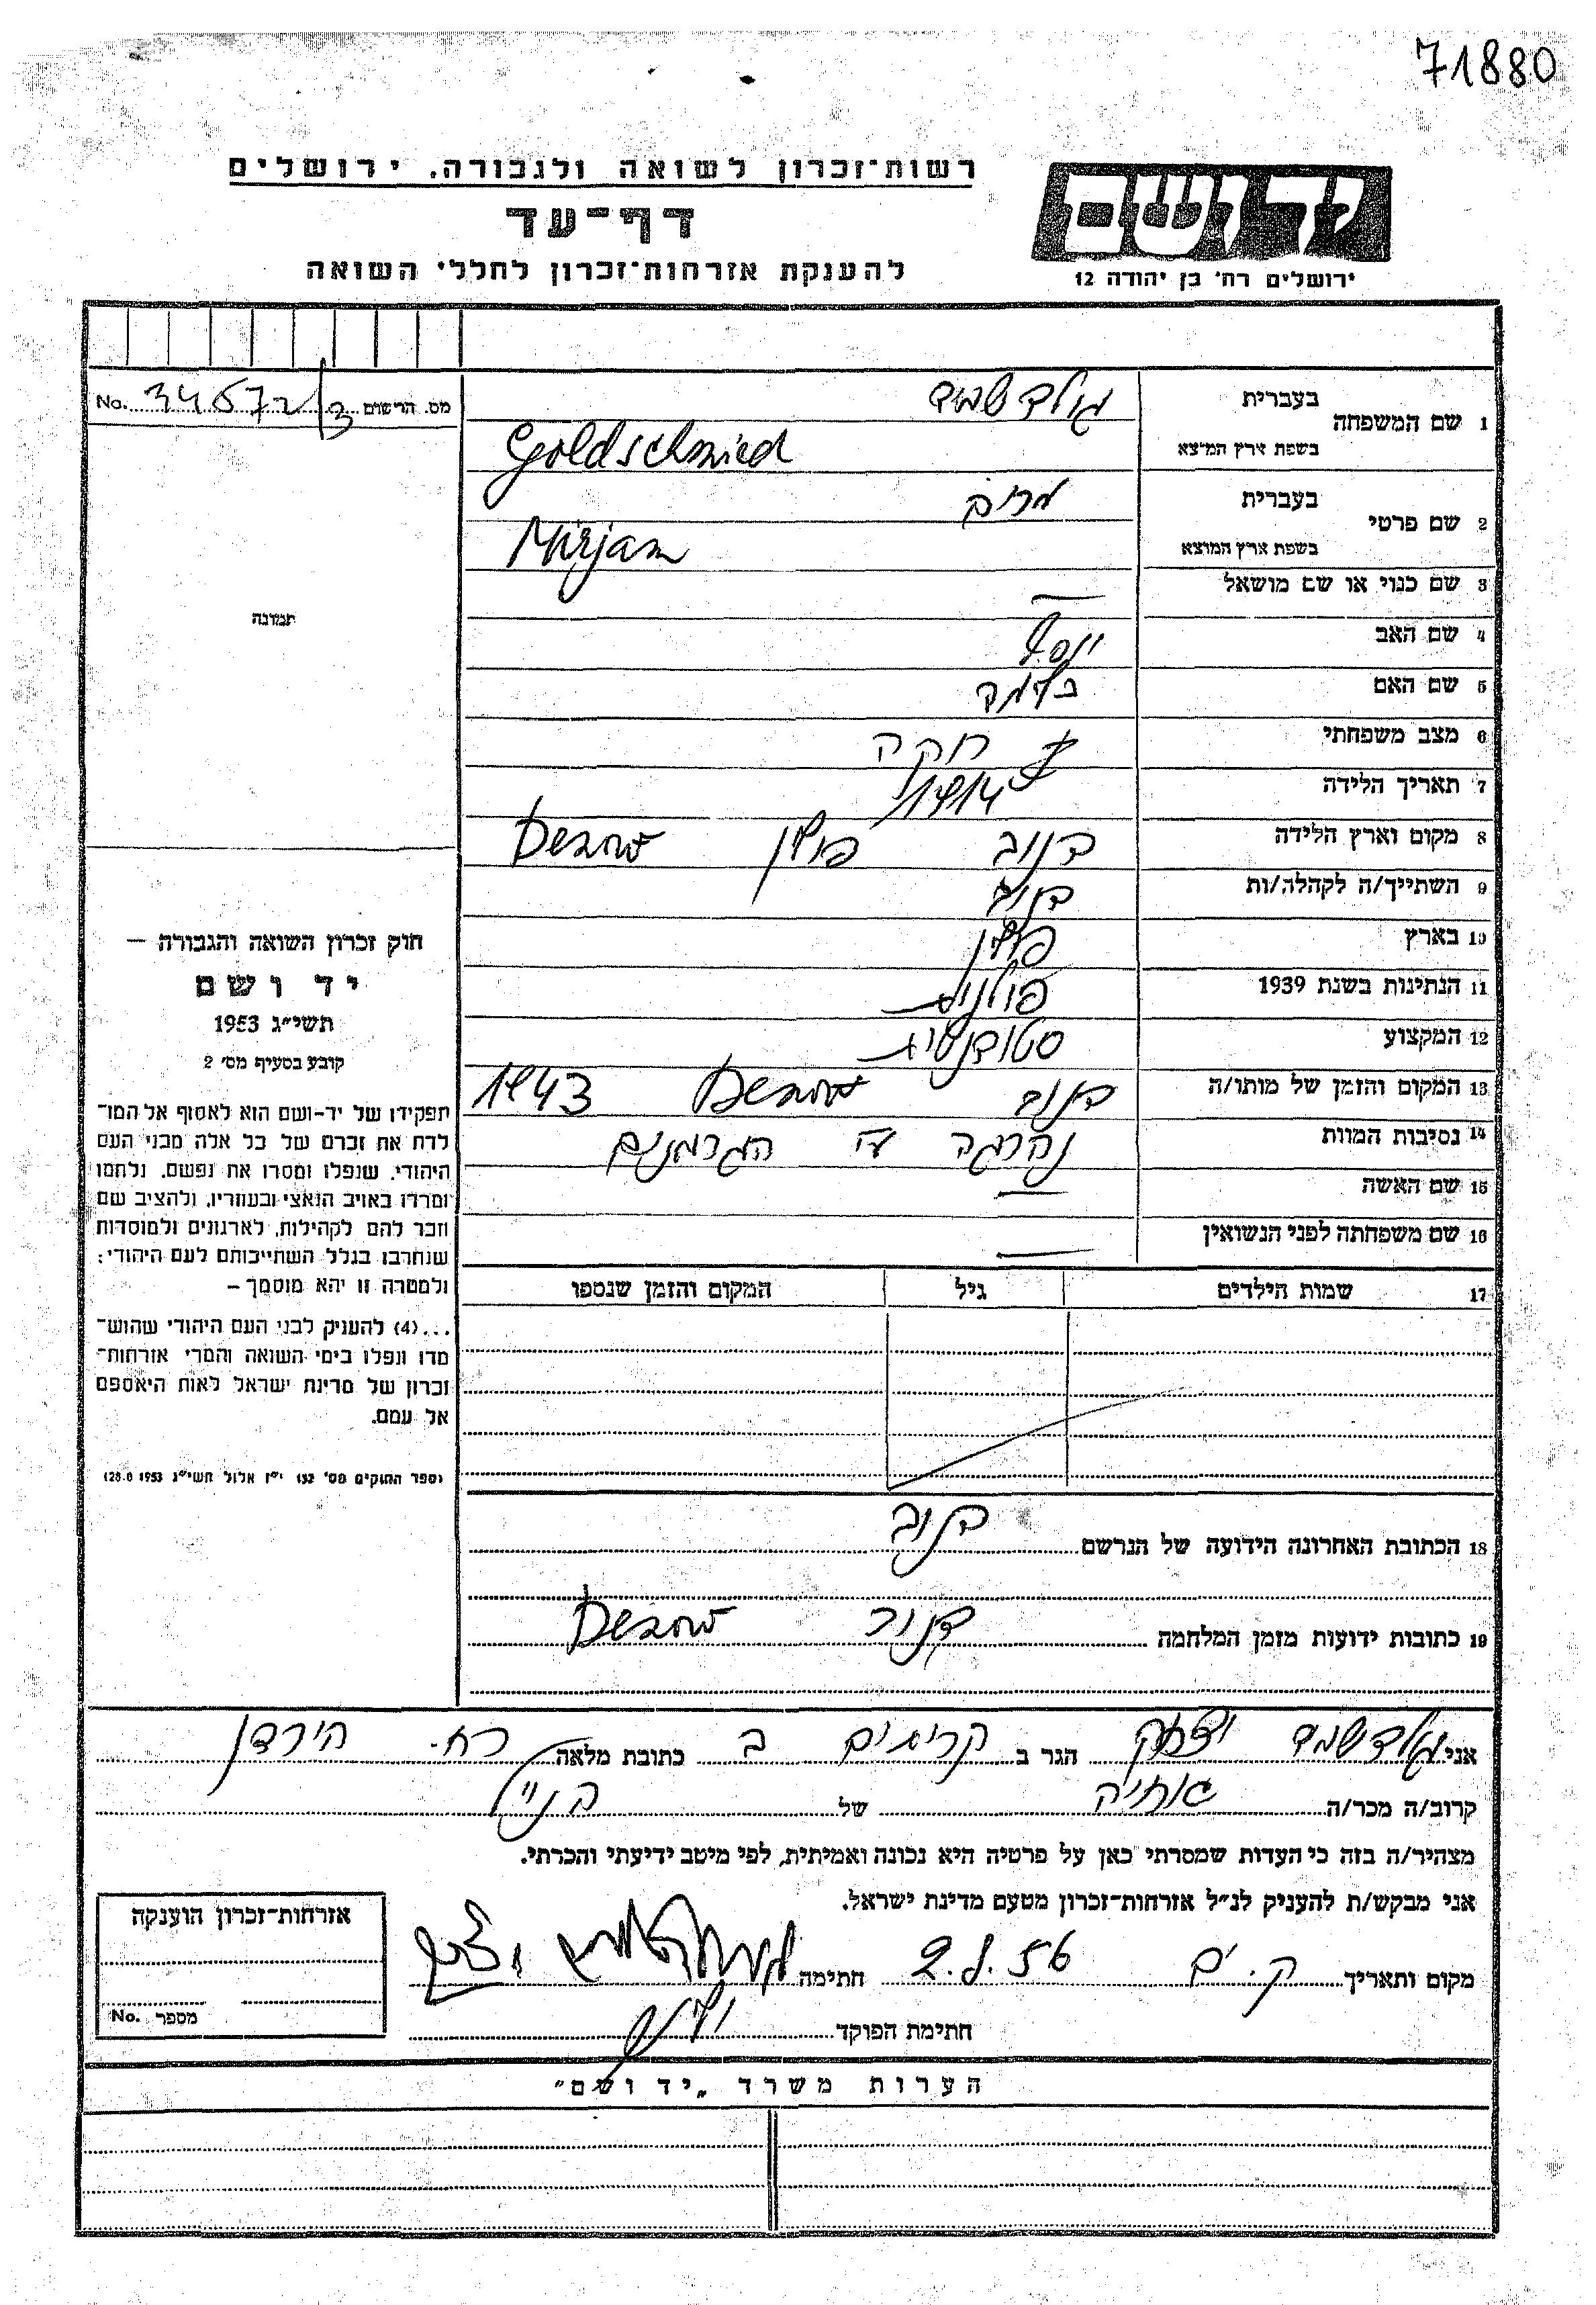 71880
רשות-זכרון לשואה ולגבורה. ירושלים
דף-עד
להענקת אזרחות-זכרון לחללי השואה
ידושם
ירושלים רח' בן יהודה 12
מס. הרשום 34672/3 No.
1 שם המשפחה בעברית גולדשמיד
בשפת ארץ המוצא Goldschmied
2 שם פרטי בעברית מרים
בשפת ארץ המוצא Mirjam
3 שם כנוי או שם מושאל —
4 שם האב יוסף
5 שם האם
6 מצב משפחתי רוקה
7 תאריך הלידה 1914
8 מקום וארץ הלידה דנוב פולין Denow
9 השתייך/ה לקהלה/ות דנוב
10 בארץ פולין
11 הנתינות בשנת 1939 פולנית
12 המקצוע סטודנטית
13 המקום והזמן של מותו/ה דנוב Denow 1943
14 נסיבות המוות נהרגה ע"י הגרמנים
15 שם האשה —
16 שם משפחתה לפני הנשואין —
17 שמות הילדים גיל המקום והזמן שנספו
18 הכתובת האחרונה הידועה של הנרשם דנוב
19 כתובות ידועות מזמן המלחמה דנוב Denow
תמונה
חוק זכרון השואה והגבורה —
יד ושם
תשי"ג 1953
קובע בסעיף מס' 2
תפקידו של יד-ושם הוא לאסוף אל המו-
לדת את זכרם של כל אלה מבני העם
היהודי, שנפלו ומסרו את נפשם, נלחמו
ומרדו באויב הנאצי ובעוזריו, ולהציב שם
וזכר להם לקהילות, לארגונים ולמוסדות
שנחרבו בגלל השתייכותם לעם היהודי;
ולמטרה זו יהא מוסמך —
...(4) להעניק לבני העם היהודי שהוש-
מדו ונפלו בימי השואה והמרי אזרחות-
זכרון של מדינת ישראל לאות היאספם
אל עמם.
(ספר החוקים מס' 132 י"ז אלול תשי"ג 28.8.1953)
אני גולדשמד יצחק הגר ב קריות ים ב כתובת מלאה רח. הירדן
קרוב/ה מכר/ה אחיה של הנ"ל
מצהיר/ה בזה כי העדות שמסרתי כאן על פרטיה היא נכונה ואמיתית, לפי מיטב ידיעתי והכרתי.
אני מבקש/ת להעניק לנ"ל אזרחות-זכרון מטעם מדינת ישראל.
מקום ותאריך ק. ים 2.8.56 חתימה
חתימת הפוקד
אזרחות-זכרון הוענקה
מספר No.
הערות משרד „יד ושם"